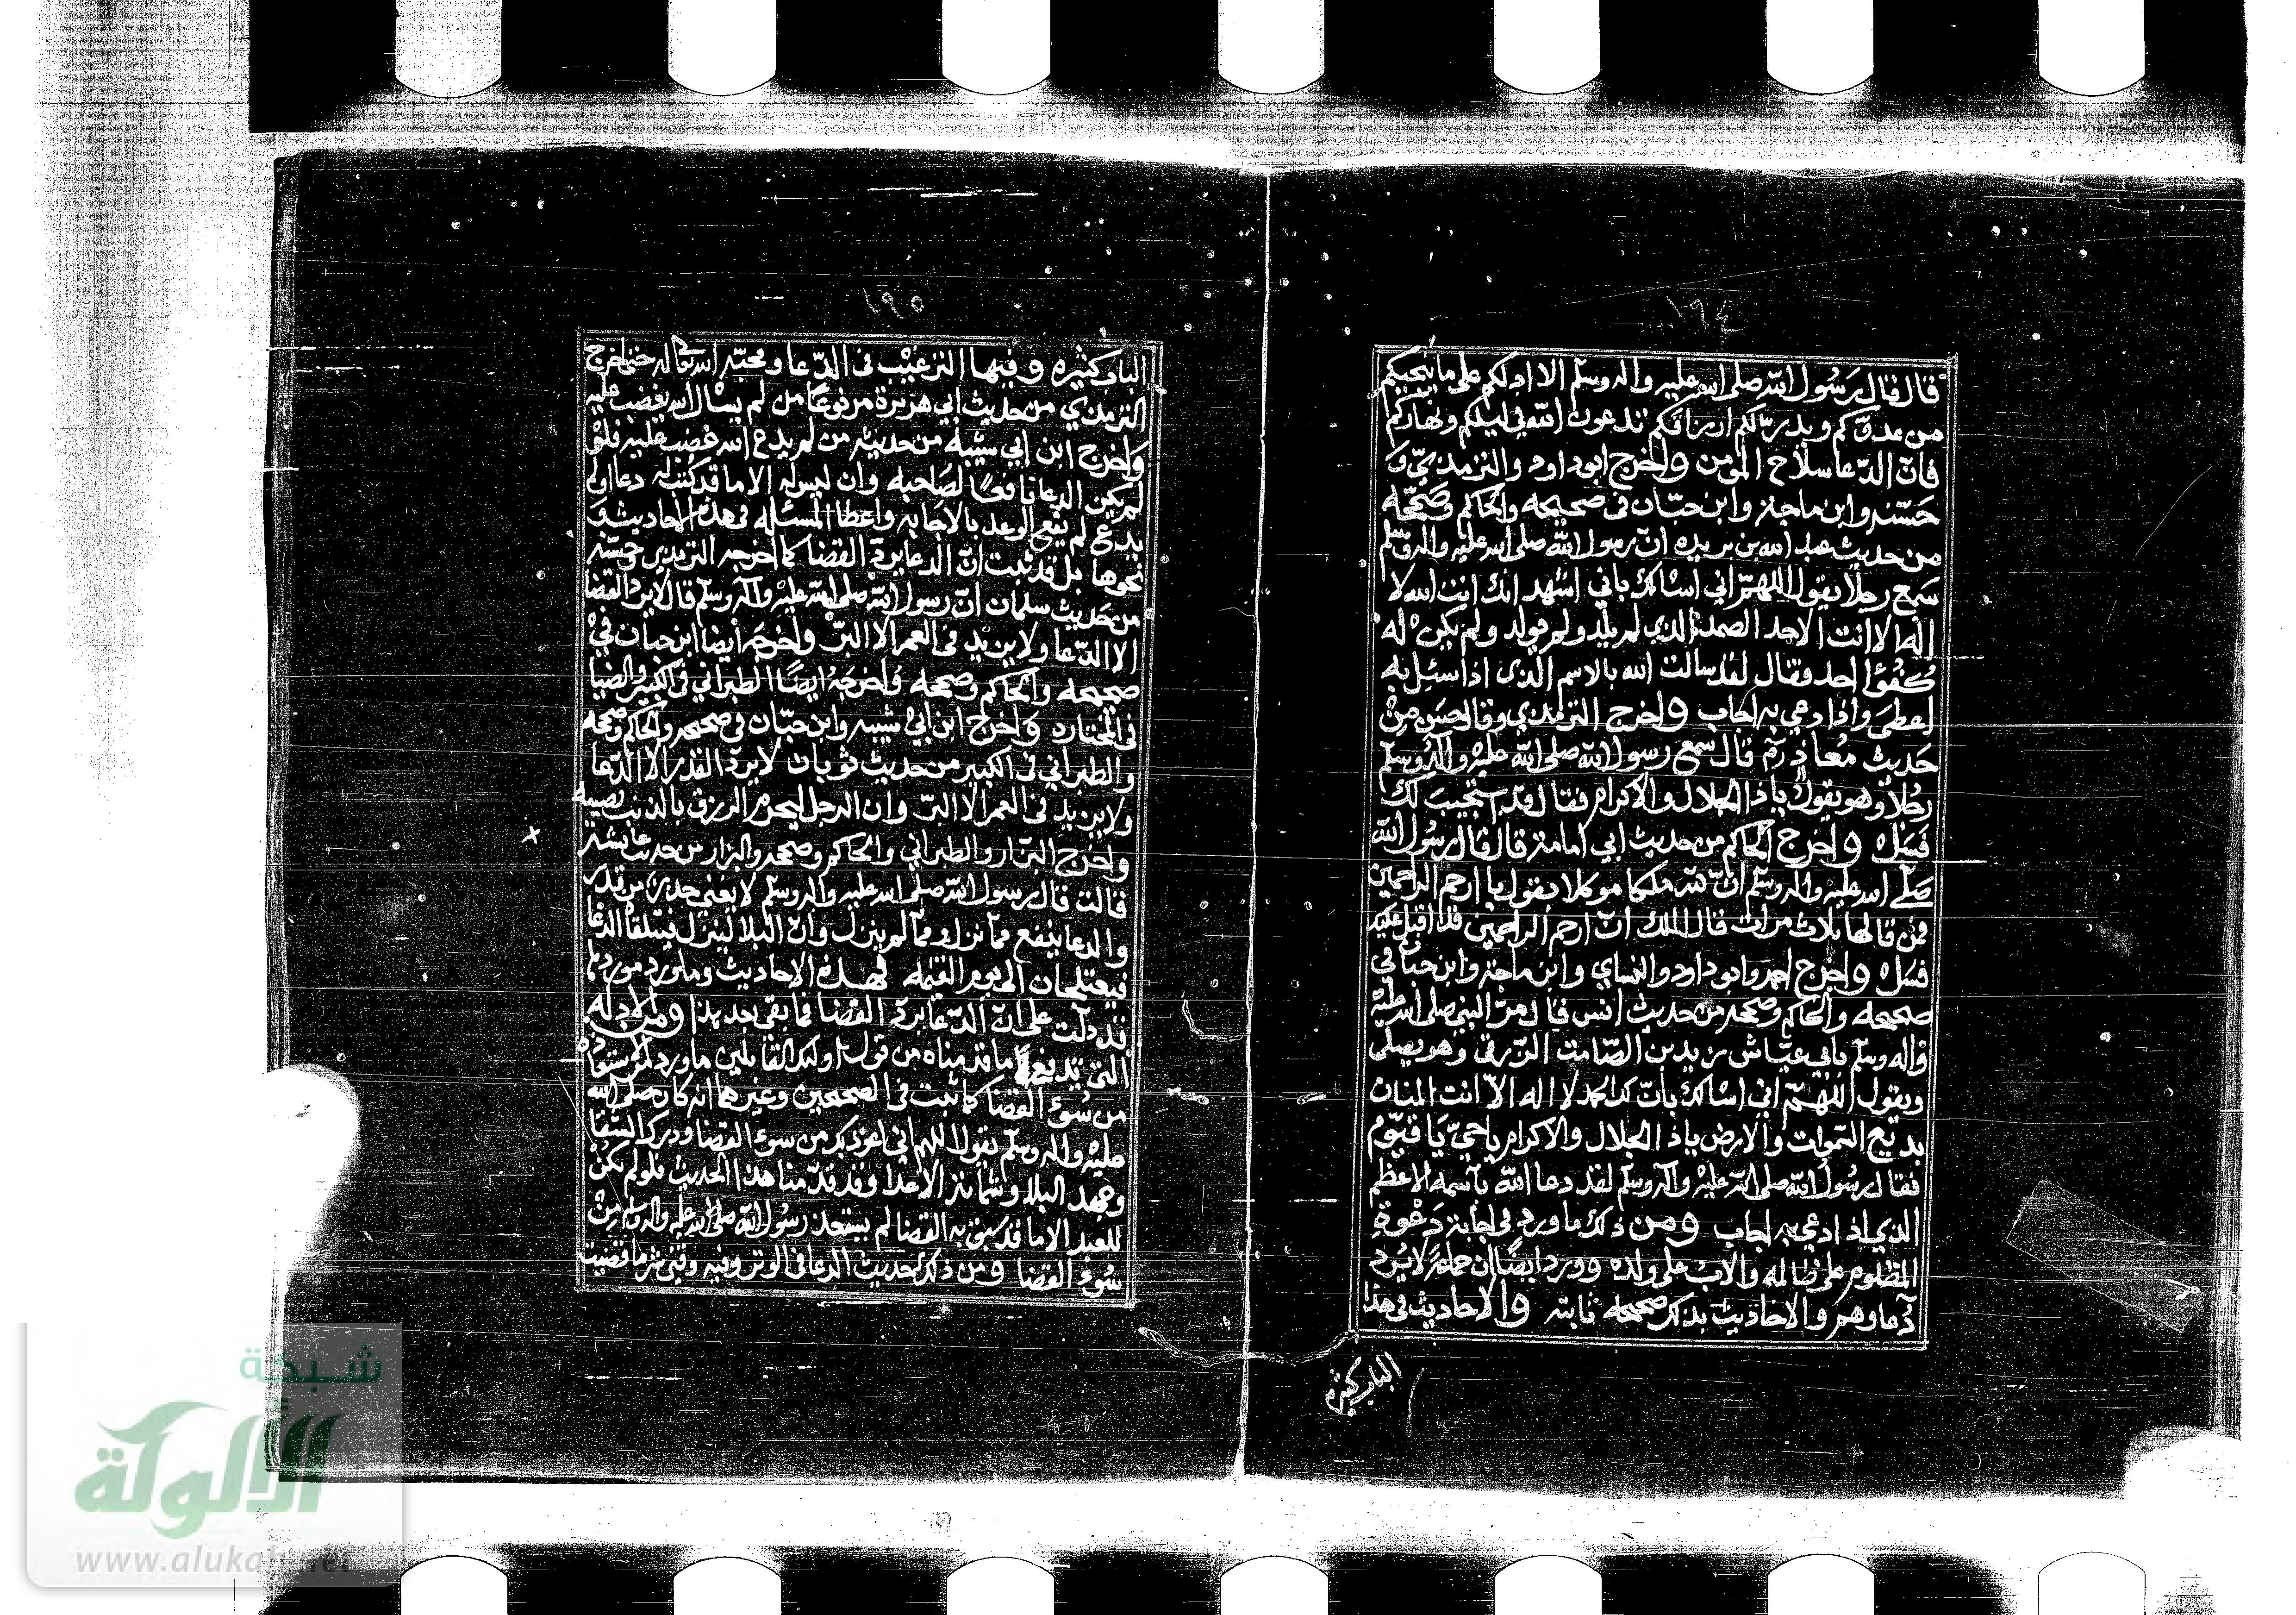 ١٩٤
قال قال رسول الله صلى الله عليه واله وسلم الا ادلكم على ما ينجيكم
من عدوكم ويدر لكم ارزاقكم تدعون الله في ليلكم ونهاركم
فان الدعا سلاح المؤمن واخرج ابو داود والترمذي و
حسنه وابن ماجه وابن حبان في صحيحه والحاكم وصححه
من حديث عبد الله بن بريده ان رسول الله صلى الله عليه واله وسلم
سمع رجلا يقول اللهم اني اسالك باني اشهد انك انت الله لا
اله الا انت الاحد الصمد الذي لم يلد ولم يولد ولم يكن له
كفوا احد فقال لقد سالت الله بالاسم الذي اذا سئل به
اعطى واذا دعي به اجاب واخرج الترمذي وقال حسن من
حديث معاذ رض قال سمع رسول الله صلى الله عليه واله وسلم
رجلا وهو يقول يا ذا الجلال والاكرام فقال قد استجيب لك
فسل واخرج الحاكم من حديث ابي امامة قال قال رسول الله
صلى الله عليه واله وسلم ان لله ملكا موكلا بقول يا ارحم الراحمين
فمن قالها ثلاث مرات قال الملك ان ارحم الراحمين قد اقبل عليك
فسل واخرج احمد وابو داود والنساي وابن ماجه وابن حبان في
صحيحه والحاكم وصححه من حديث انس قال مر النبي صلى الله عليه
واله وسلم بابي عياش زيد بن الصامت الزرقي وهو يصلي
ويقول اللهم اني اسالك بان لك الحمد لا اله الا انت المنان
بديع السموات والارض يا ذا الجلال والاكرام يا حي يا قيوم
فقال رسول الله صلى الله عليه واله وسلم لقد دعا الله باسمه الاعظم
الذي اذا دعي به اجاب ومن ذلك ما ورد في اجابة دعوة
المظلوم على ظالمه والاب على ولده وورد ايضا ان جماعة لا يرد
دعاوهم والاحاديث بذلك صحيحه ثابته والاحاديث في هذا
الباب كثيره
١٩٥
الباب كثيره وفيها الترغيب في الدعا ومحبة الله تعالى له حتى اخرج
الترمذي من حديث ابي هريرة مرفوعا من لم يسال الله يغضب عليه
واخرج ابن ابي شيبه من حديثه من لم يدع الله غضب عليه فلو
لم يكن الدعا نافعا لصاحبه وان ليس له الا ما قد كتب له دعا او لم
يدع لم يقع الوعد بالاجابه واعطا المسئله في هذه الاحاديث و
نحوها بل قد ثبت ان الدعا يرد القضا كما اخرجه الترمذي وحسنه
من حديث سلمان ان رسول الله صلى الله عليه واله وسلم قال لا يرد القضا
الا الدعا ولا يزيد في العمر الا البر واخرجه ايضا ابن حبان في
صحيحه والحاكم وصححه واخرجه ايضا الطبراني في الكبير والضيا
في المختاره واخرج ابن ابي شيبه وابن حبان في صحيحه والحاكم وصححه
والطبراني في الكبير من حديث ثوبان لا يرد القدر الا الدعا
ولا يزيد في العمر الا البر وان الرجل ليحرم الرزق بالذنب يصيبه
واخرج البزار والطبراني والحاكم وصححه والبزار من حديث عايشه
قالت قال رسول الله صلى الله عليه واله وسلم لا يغني حذر من قدر
والدعا ينفع مما نزل ومما لم ينزل وان البلا لينزل فيتلقاه الدعا
فيعتلجان الى يوم القيمه فهذه الاحاديث وما ورد موردها
قد دلت على ان الدعا يرد القضا فما بقي بعد هذا ومن الادله
التي تدفع ما قدمناه من قول اولئك القائلين ما ورد من الاستعاذه
من سوء القضا كما ثبت في الصحيحين وغيرهما انه كان صلى الله
عليه واله وسلم يقول اللهم اني اعوذ بك من سوء القضا ودرك الشقا
وجهد البلا وشماتة الاعدا وقد قدمنا هذا الحديث فلو لم يكن
للعبد الا ما قد سبق به القضا لم يستعذ رسول الله صلى الله عليه واله وسلم من
سوء القضا ومن ذلك حديث الدعا في الوتر وفيه وقني شر ما قضيت
شبكة
الألوكة
www.alukah.net